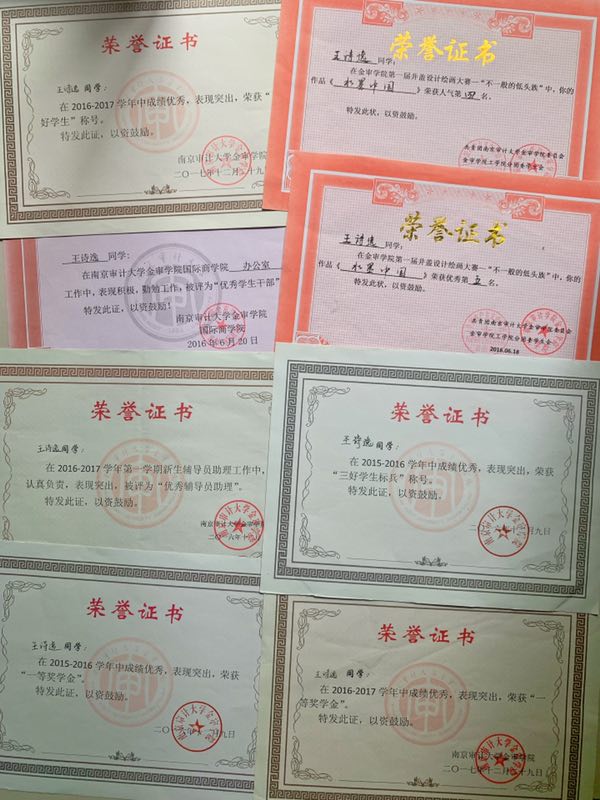 荣誉证书
王诗逸 同学:
在 2016-2017 学年中成绩优秀，表现突出，荣获“
好学生”称号。
特发此证，以资鼓励。
南京审计大学金审学院
二〇一七年十二月二十九日
荣誉证书
王诗逸 同学:
在金审学院第一届井盖设计绘画大赛—“不一般的低头族”中,你的
作品《 水墨中国 》荣获人气第四名.
特发此状，以资鼓励.
共青团南京审计大学金审学院委员会
金审学院工学院分团委学生会
王诗逸 同学:
在南京审计大学金审学院国际商学院 办公室
工作中，表现积极，勤勉工作，被评为“优秀学生干部”
特发此证，以资鼓励！
南京审计大学金审学院
国际商学院
2016 年 6 月 20 日
荣誉证书
王诗逸 同学:
在金审学院第一届井盖设计绘画大赛—“不一般的低头族”中,你的
作品《 水墨中国 》荣获优秀第五名.
特发此状，以资鼓励.
共青团南京审计大学金审学院委员会
金审学院工学院分团委学生会
2016.06.16
荣誉证书
王诗逸 同学:
在 2016-2017 学年第一学期新生辅导员助理工作中，
认真负责，表现突出，被评为“优秀辅导员助理”。
特发此证，以资鼓励。
南京审计大学金审学院
荣誉证书
王诗逸 同学:
在 2015-2016 学年中成绩优秀，表现突出，荣获
“三好学生标兵”称号。
特发此证，以资鼓励。
南京审计大学金审学院
月九日
荣誉证书
王诗逸 同学:
在 2015-2016 学年中成绩优秀，表现突出，荣获
“一等奖学金”。
特发此证，以资鼓励。
南京审计大学金审学院
月九日
荣誉证书
王诗逸 同学:
在 2016-2017 学年中成绩优秀，表现突出，荣获“一
等奖学金”。
特发此证，以资鼓励。
南京审计大学金审学院
二〇一七年十二月二十九日